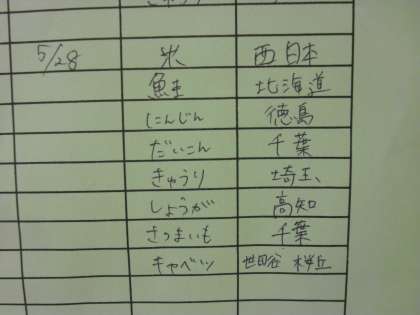 5/28 米 西日本
鮭 北海道
にんじん 徳島
だいこん 千葉
きゅうり 埼玉
しょうが 高知
さつまいも 千葉
キャベツ 世田谷 桜丘